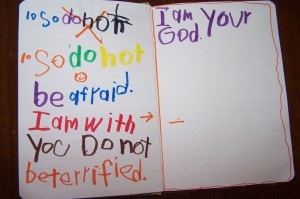 10 So do not
10 So do not
be afraid.
I am with
you Do not
be terrified.
I am your
God.